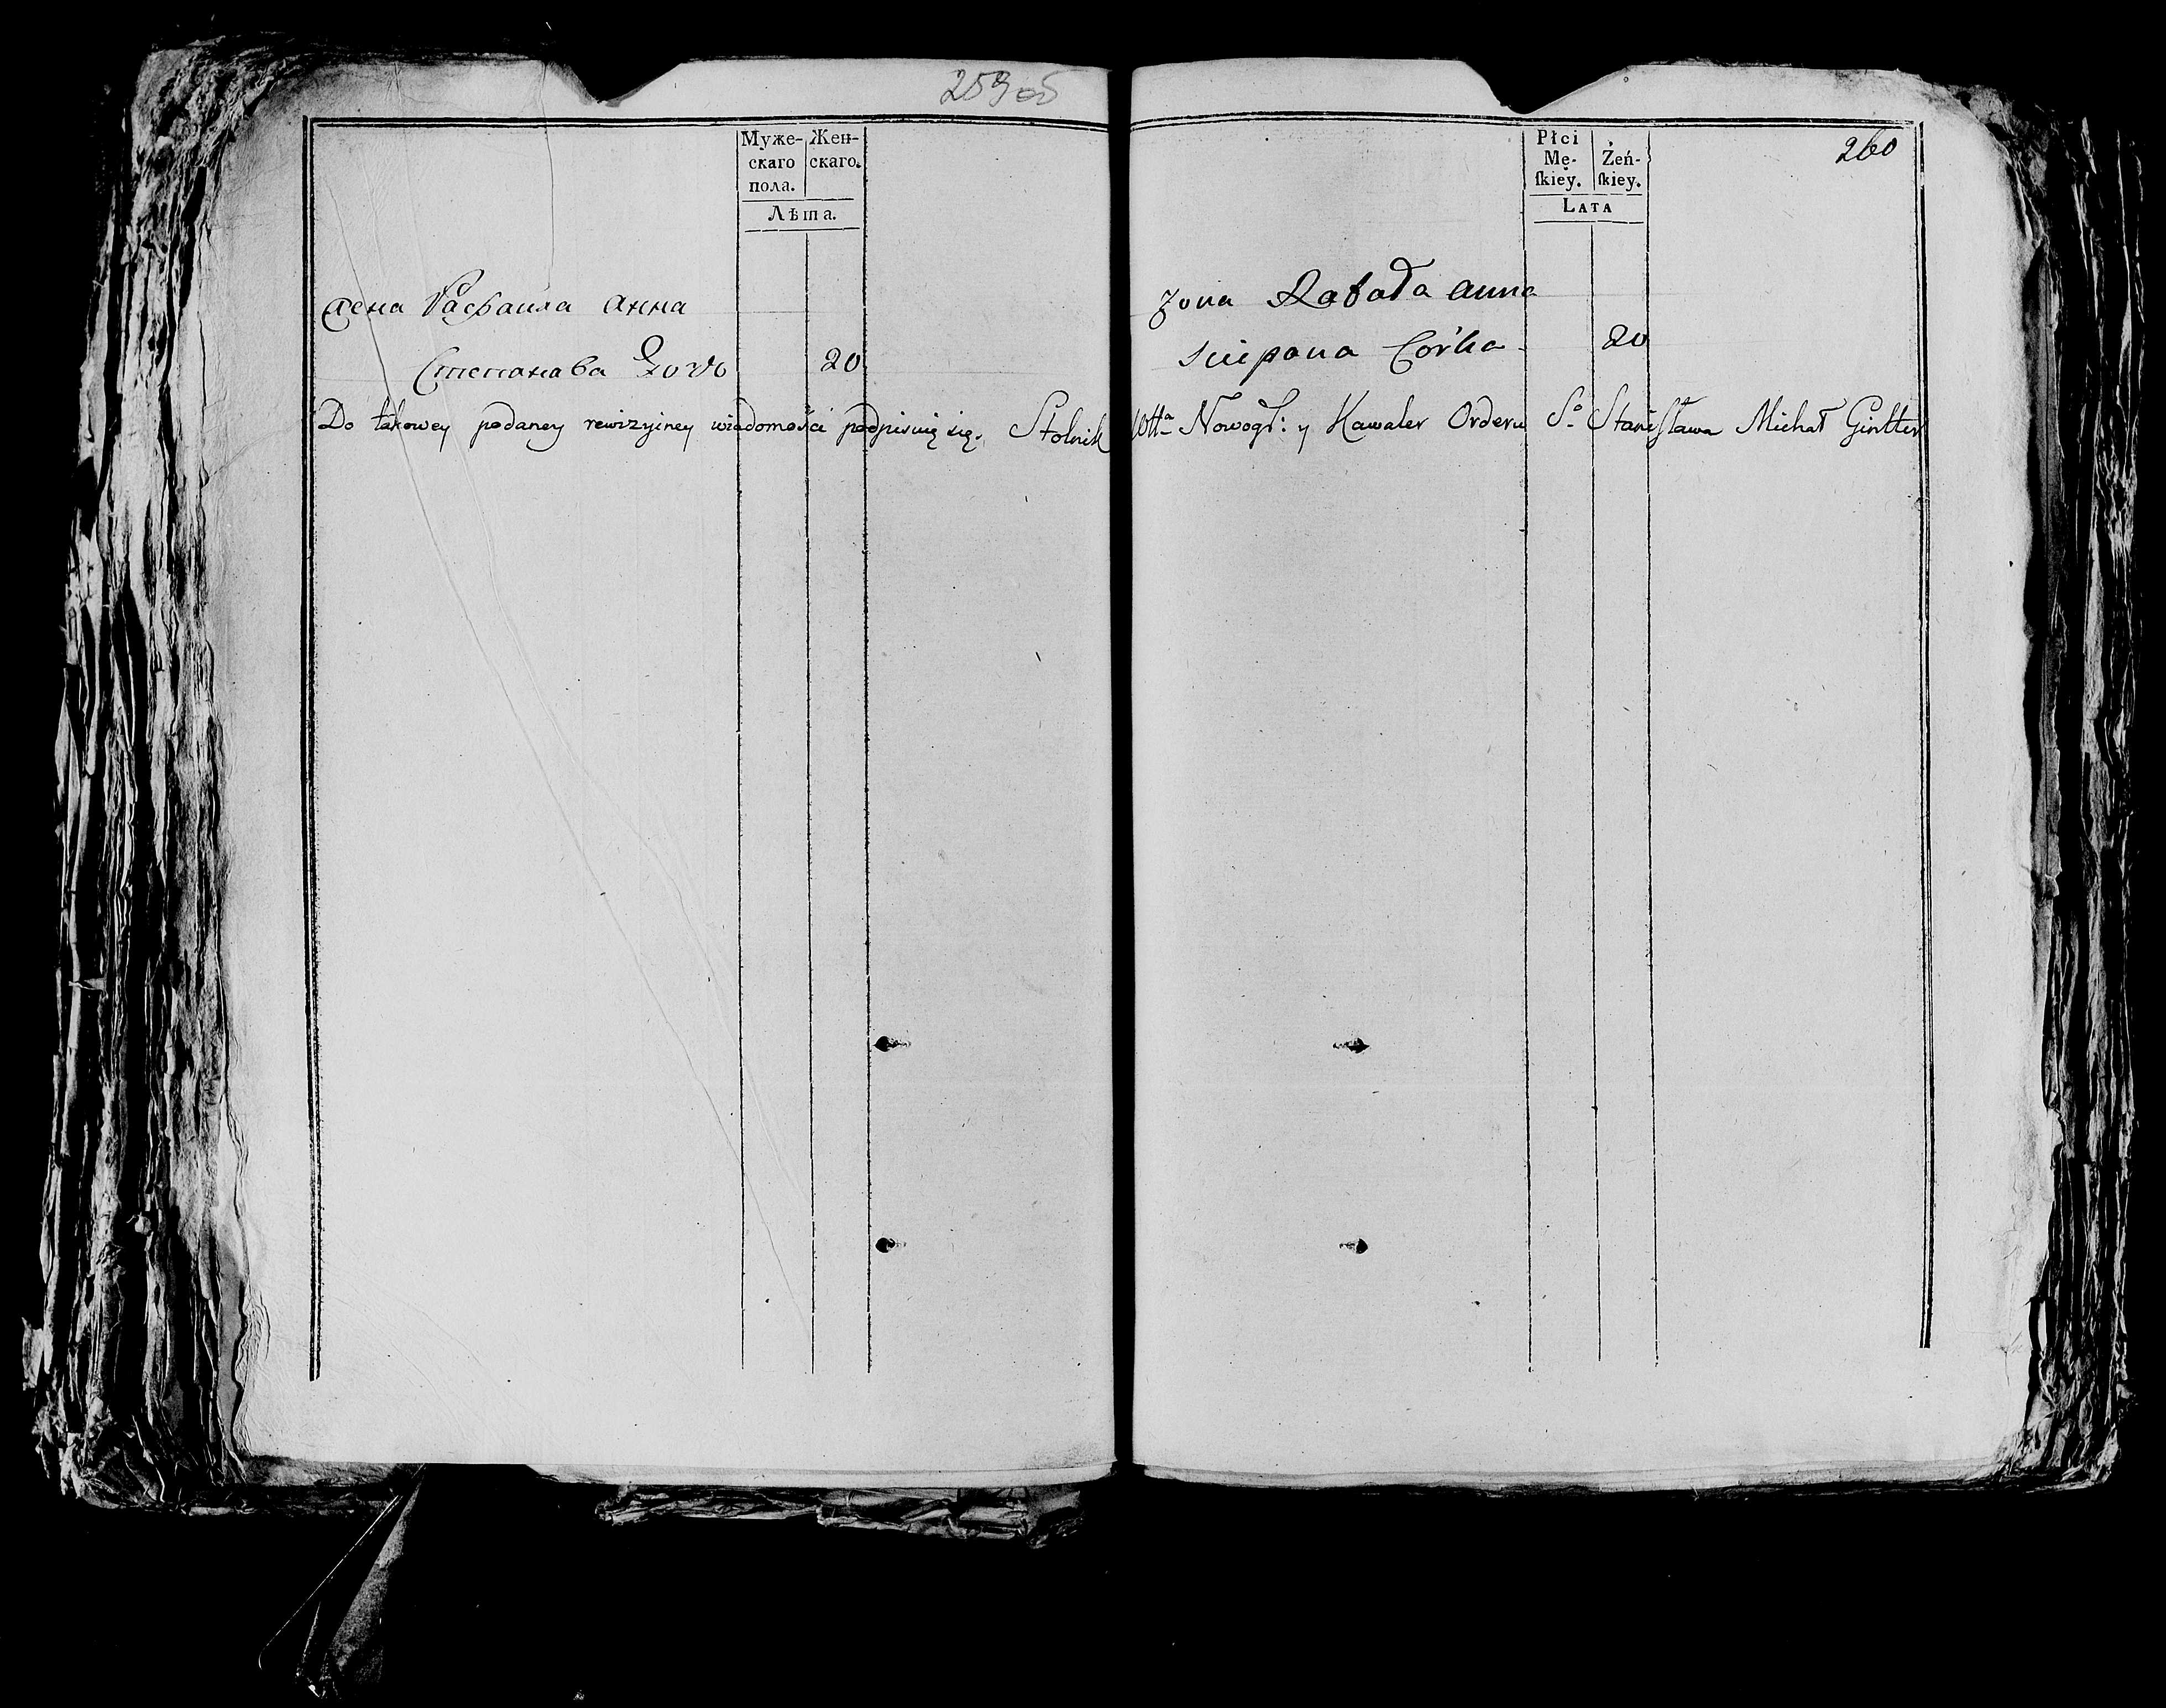 259об
Муже- Жен-
скаго скаго.
пола.
Лѣта.
жена Рафаила Анна
Степанава Дочь 20
Do takowey podaney rewizyiney wiadomości podpisuię się. Stolnik
260
Płci
Mę- Żeń-
ſkiey. ſkiey.
LATA
żona Rafała Anna
Sciepana Córka 20
Wtta Nowogr: y Kawaler Orderu So Stanisława Michał Gintter